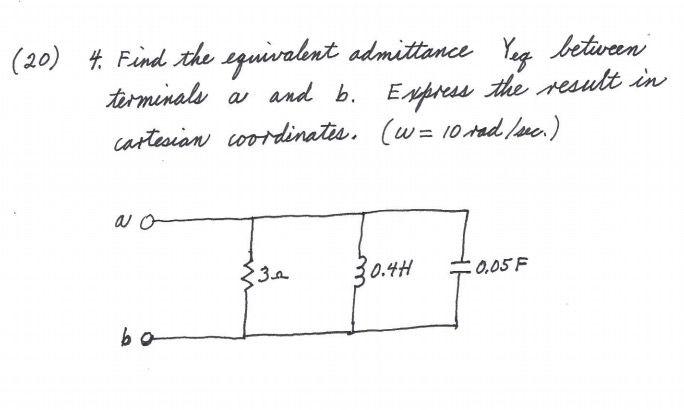 (20) 4. Find the equivalent admittance Yeq between
terminals a and b. Express the result in
cartesian coordinates. (ω = 10 rad/sec.)
a
3Ω 0.4H 0.05F
b